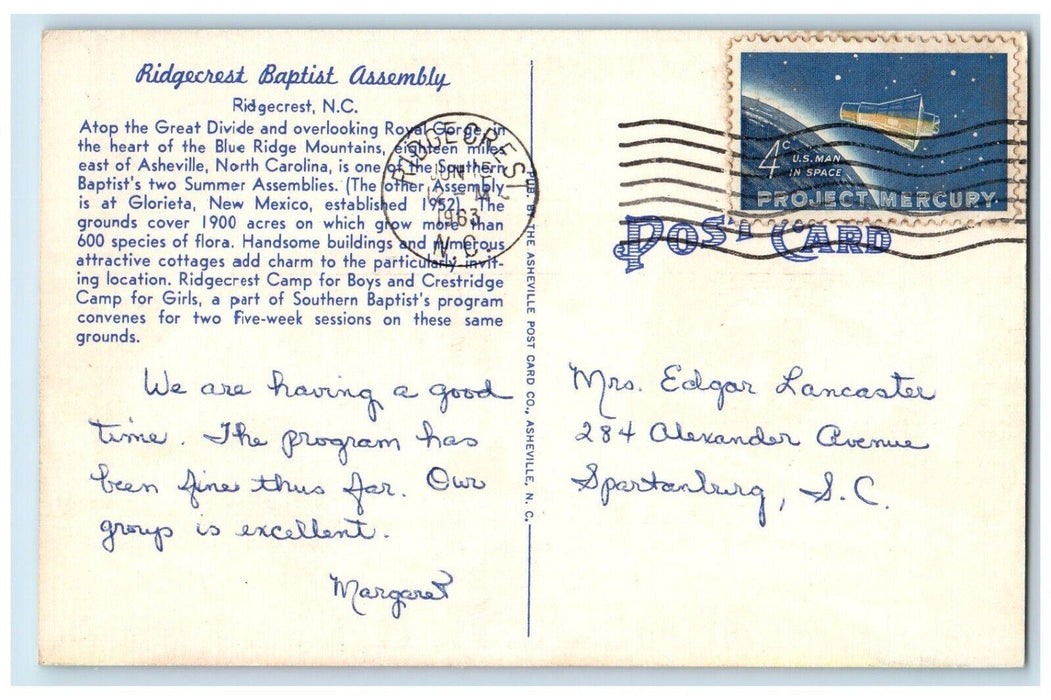 Ridgecrest Baptist Assembly
Ridgecrest, N.C.
Atop the Great Divide and overlooking Royal Gorge, in
the heart of the Blue Ridge Mountains, eighteen miles
east of Asheville, North Carolina, is one of the Southern
Baptist's two Summer Assemblies. (The other Assembly
is at Glorieta, New Mexico, established 1952). The
grounds cover 1900 acres on which grow more than
600 species of flora. Handsome buildings and numerous
attractive cottages add charm to the particularly invit-
ing location. Ridgecrest Camp for Boys and Crestridge
Camp for Girls, a part of Southern Baptist's program
convenes for two five-week sessions on these same
grounds.
We are having a good
time. The program has
been fine thus far. Our
group is excellent.
Margaret
RIDGECREST
JUN
1963
N.C.
PUB. BY THE ASHEVILLE POST CARD CO., ASHEVILLE, N. C.
4c
U.S. MAN
IN SPACE
PROJECT MERCURY
POST CARD
Mrs. Edgar Lancaster
284 Alexander Avenue
Spartanburg, S.C.